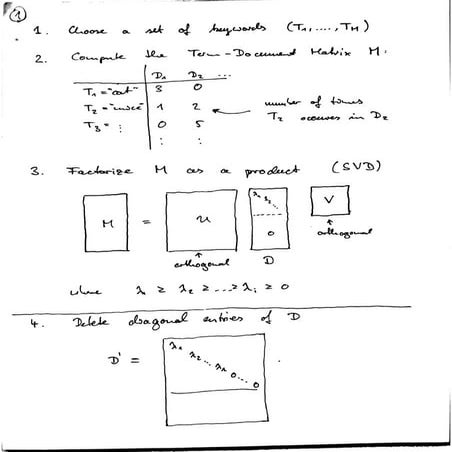 ①
1. Choose a set of keywords (T₁, ...., T_M)
2. Compute the Term-Document Matrix M.
D₁ D₂ ...
T₁ = "cat" 3 0
T₂ = "mice" 1 2 ← number of times
T₃ = ⋮ 0 5 T₂ occurs in D₂
⋮ ⋮
3. Factorize M as a product (SVD)
M = U λ₁ λ₂ ... 0 V
orthogonal D orthogonal
where λ₁ ≥ λ₂ ≥ ... ≥ λᵢ ≥ 0
4. Delete diagonal entries of D
D' = λ₁ λ₂ ... λₖ 0 ... 0